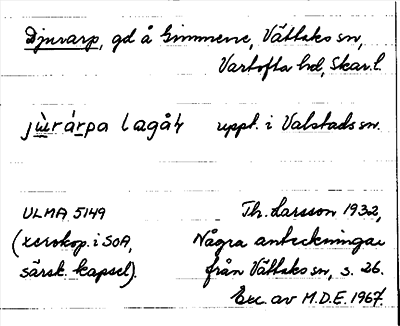 Djurarp, gd å Gimmene, Vättaks sn,
Vartofta hd, Skar. l.
jùrárpa lagåṙ uppt. i Valstads sn.
ULMA 5149 Th. Larsson 1932,
(xerokop. i SOA, Några anteckningar
särsk. kapsel). från Vättaks sn, s. 26.
Exc. av M.D.E. 1967.